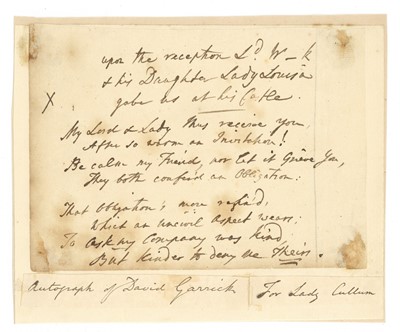 upon the reception Ld. W - k
& his Daughter Lady Louisa
gave us at his Castle.
X
My Lord & Lady thus receive you,
After so warm an Invitation!
Be calm my Friend, nor let it grieve you,
They both confer'd an Obligation:
That Obligation's more refin'd,
Which an uncivil Aspect wears;
To Ask my Company was kind,
But kinder to deny me Theirs.
Autograph of David Garrick
For Lady Cullum